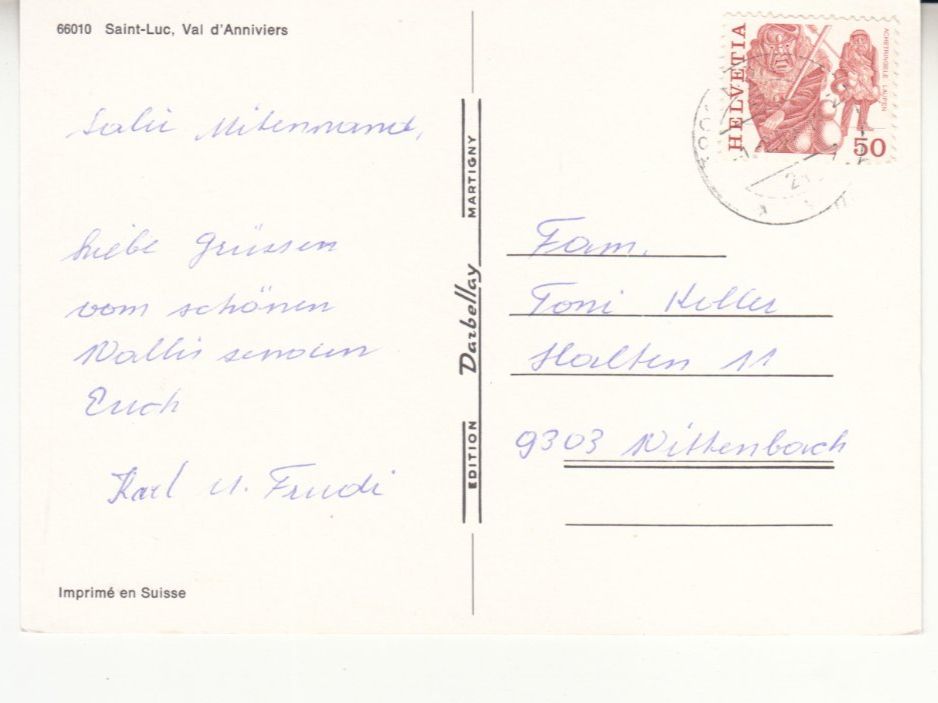 66010 Saint-Luc, Val d'Anniviers
Salü Mitenand,
Liebe Grüssen
vom schönen
Wallis senden
Euch
Karl u. Trudi
Imprimé en Suisse
EDITION Darbellay MARTIGNY
HELVETIA
ACHETRINGELE LAUPEN
50
Fam.
Toni Keller
Halten 11
9303 Wittenbach